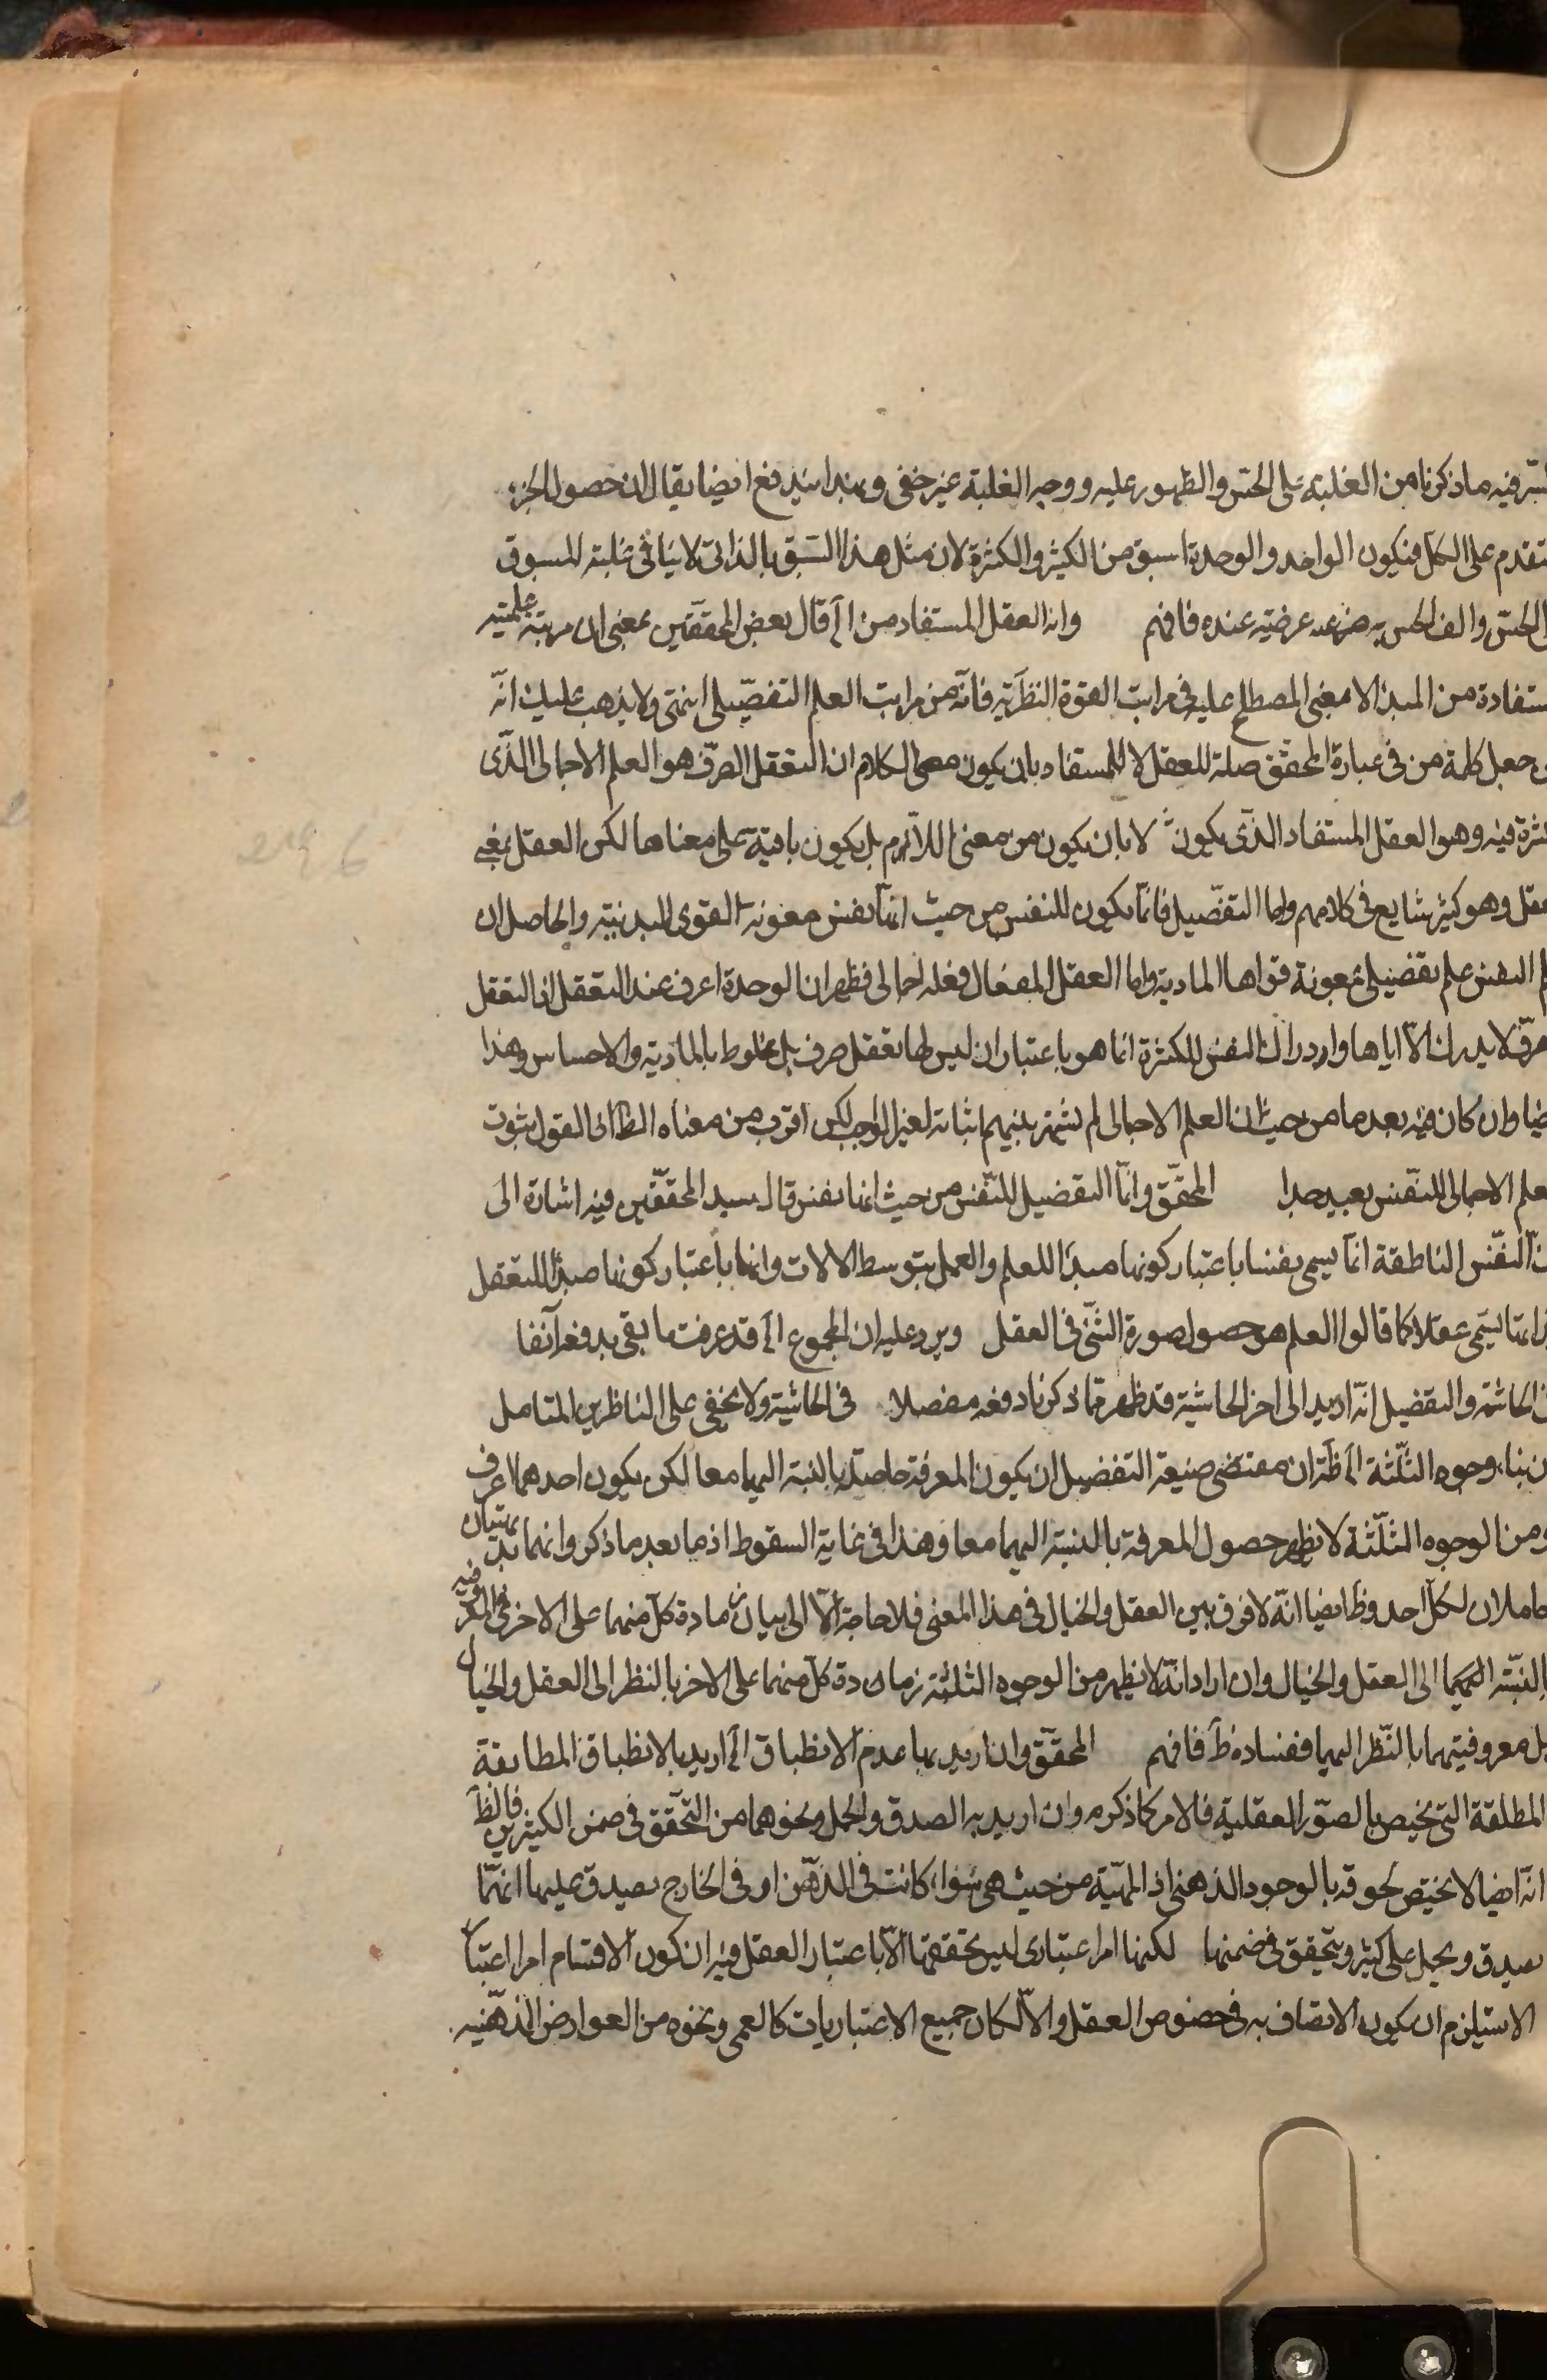 فيه ما ذكرنا من الغلبة على الحس والظهور عليه ووجه الغلبة غير خفى وبهذا يندفع ايضا يقال ان حصول الجزء
متقدم على الكل فيكون الواحد والوحدة اسبق من الكثير والكثرة لان مثل هذا السبق بالذات لا ينافى غلبة المسبوق
الحس والف الحس به عرضيته عنده فافهم وانه العقل المستفاد من الخ قال بعض المحققين بمعنى ان مرتبة علميته
مستفادة من المبدء لا معنى المصطلح عليه فى مراتب القوة النظرية فانه من مراتب العلم التفصيلى انتهى ولا يذهب عليك انه
جعل كلمة من فى عبارة المحقق صلة للعقل لا للمستفاد بان يكون معنى الكلام ان التعقل الصرف هو العلم الاجمالى الذى
كثرة فيه وهو العقل المستفاد الذى يكون لا بان يكون من معنى اللازم بل يكون باقية على معناها لكن العقل بمعنى
وهو كثير شايع فى كلامهم واما التفصيل فانما يكون للنفس من حيث انها نفس معونة القوى البدنية والحاصل ان
النفس علم تفصيلى بمعونة قواها المادية واما العقل الفعال فعلمه اجمالى فظهر ان الوحدة اعرف عند التعقل اذ التعقل
لا يدرك الا اياها وادراك النفس للكثرة انما هو باعتبار ان ليس لها تعقل صرف بل مخلوط بالمادية والاحساس وهذا
وان كان فيه بعد ما من حيث ان العلم الاجمالى لم يشتهر بينهم اثباته لغير الواجب لكن اقرب من معناه الظ اذ القول بثبوت
العلم الاجمالى للنفس بعيد جدا المحقق وانما التفصيل للنفس من حيث انها نفس قال سيد المحققين فيه اشارة الى
ان النفس الناطقة انما يسمى نفسا باعتبار كونها مبدأ للعلم والعمل بتوسط الالات وانها باعتبار كونها مبدأ للتعقل
انما يسمى عقلا كما قالوا العلم هو حصول صورة الشئ فى العقل ويرد عليه ان المجموع الخ قد عرفت ما بقى بدفعه آنفا
الحاشية والتفصيل انه اريد الى اخر الحاشية قد ظهر مما ذكرنا دفعه مفصلا فى الحاشية ولا يخفى على الناظرين المتامل
بناء وجوه الثلثة الخ ظ ان مقتضى صيغة التفضيل ان يكون المعرفة حاصلة بالنسبة اليهما معا لكن يكون احدهما اعرف
ومن الوجوه الثلثة لا يظهر حصول المعرفة بالنسبة اليهما معا وهذا فى غاية السقوط اذ ما بعد ما ذكر وانهما بديهيتان
حاصلان لكل احد وظ ايضا انه لا فرق بين العقل والخيال فى هذا المعنى فلا حاجة الا الى بيان زيادة كل منهما على الاخر فى المعروفية
بالنسبة اليهما الى العقل والخيال وان اراد انه لا يظهر من الوجوه الثلثة زيادة كل منهما على الاخر بالنظر الى العقل والخيال
بل معروفيتهما بالنظر اليهما ففساده ظ فافهم المحقق وان اريد بها عدم الانطباق الخ اريد بالانطباق المطابقة
المطلقة التى يختص بالصور العقلية فالامر كما ذكره وان اريد به الصدق والحمل ونحوهما من التحقق فى ضمن الكثيرين فالظ
انه ايضا لا يختص لحوقه بالوجود الذهنى اذ المهية من حيث هى سواء كانت فى الذهن او فى الخارج يصدق عليها انها
يصدق ويحمل على كثير ويتحقق فى ضمنها لكنها امر اعتبارى ليس تحققها الا باعتبار العقل وفيه ان كون الاقتسام امرا اعتباريا
لا يستلزم ان يكون الاتصاف به فى خصوص العقل والا لكان جميع الاعتباريات كالعمى ونحوه من العوارض الذهنيه